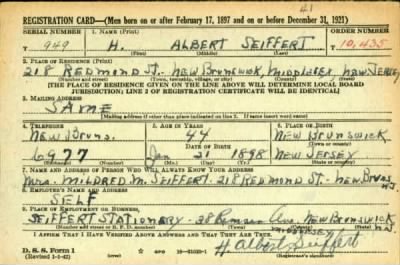 41
REGISTRATION CARD—(Men born on or after February 17, 1897 and on or before December 31, 1921)
SERIAL NUMBER 1. NAME (Print) ORDER NUMBER
T 949 H. ALBERT SEIFFERT 10,435
(First) (Middle) (Last)
2. PLACE OF RESIDENCE (Print)
218 REDMOND ST. NEW BRUNSWICK, MIDDLESEX, NEW JERSEY
(Number and street) (Town, township, village, or city) (County) (State)
[THE PLACE OF RESIDENCE GIVEN ON THE LINE ABOVE WILL DETERMINE LOCAL BOARD
JURISDICTION; LINE 2 OF REGISTRATION CERTIFICATE WILL BE IDENTICAL]
3. MAILING ADDRESS
SAME
[Mailing address if other than place indicated on line 2. If same insert word same]
4. TELEPHONE 5. AGE IN YEARS 6. PLACE OF BIRTH
NEW BRUNS. 44 NEW BRUNSWICK
DATE OF BIRTH (Town or county)
6977 Jan 21 1898 NEW JERSEY
(Mo.) (Day) (Yr.) (State or country)
7. NAME AND ADDRESS OF PERSON WHO WILL ALWAYS KNOW YOUR ADDRESS
Mrs. MILDRED M. SEIFFERT 218 REDMOND ST. NEW BRUNS NJ.
8. EMPLOYER'S NAME AND ADDRESS
SELF
9. PLACE OF EMPLOYMENT OR BUSINESS
SEIFFERT STATIONERY - 28 Remsen Ave. NEW BRUNSWICK
(Number and street or R. F. D. number) (Town) (County) (State)
I AFFIRM THAT I HAVE VERIFIED ABOVE ANSWERS AND THAT THEY ARE TRUE.
D. S. S. Form 1
(Revised 1-1-42) GPO 16—21630-1
H. Albert Seiffert
(Registrant's signature)